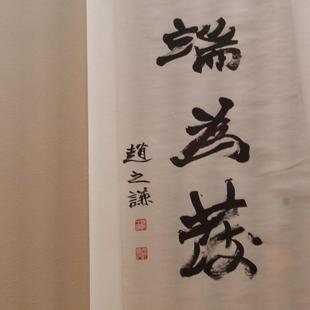 端為發
趙之謙